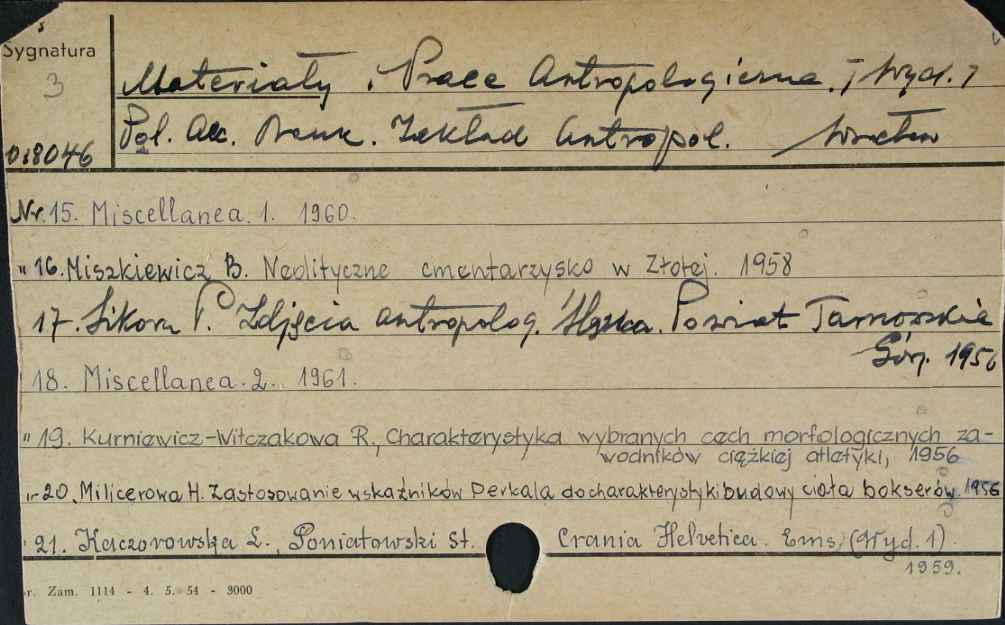 Sygnatura
3
Materiały i Prace Antropologiczne. / Wyd. /
Pol. Akc. Nauk. Zakład Antropol. Wrocław
018046
Nr. 15. Miscellanea. 1. 1960.
" 16. Miszkiewicz B. Neolityczne cmentarzysko w Złotej. 1958
17. Sikora P. Zdjęcia antropolog. Śląska. Powiat Tarnowskie
Góry. 1956
18. Miscellanea. 2. 1961.
" 19. Kurniewicz-Witczakowa R., Charakterystyka wybranych cech morfologicznych za-
wodników ciężkiej atletyki, 1956
" 20. Milicerowa H. Zastosowanie wskaźników Perkala do charakterystyki budowy ciała bokserów. 1956
" 21. Kaczorowska L., Poniatowski St. Crania Helvetica. Ems, (Wyd. 1)
1959.
r. Zam. 1114 - 4. 5. 54 - 3000